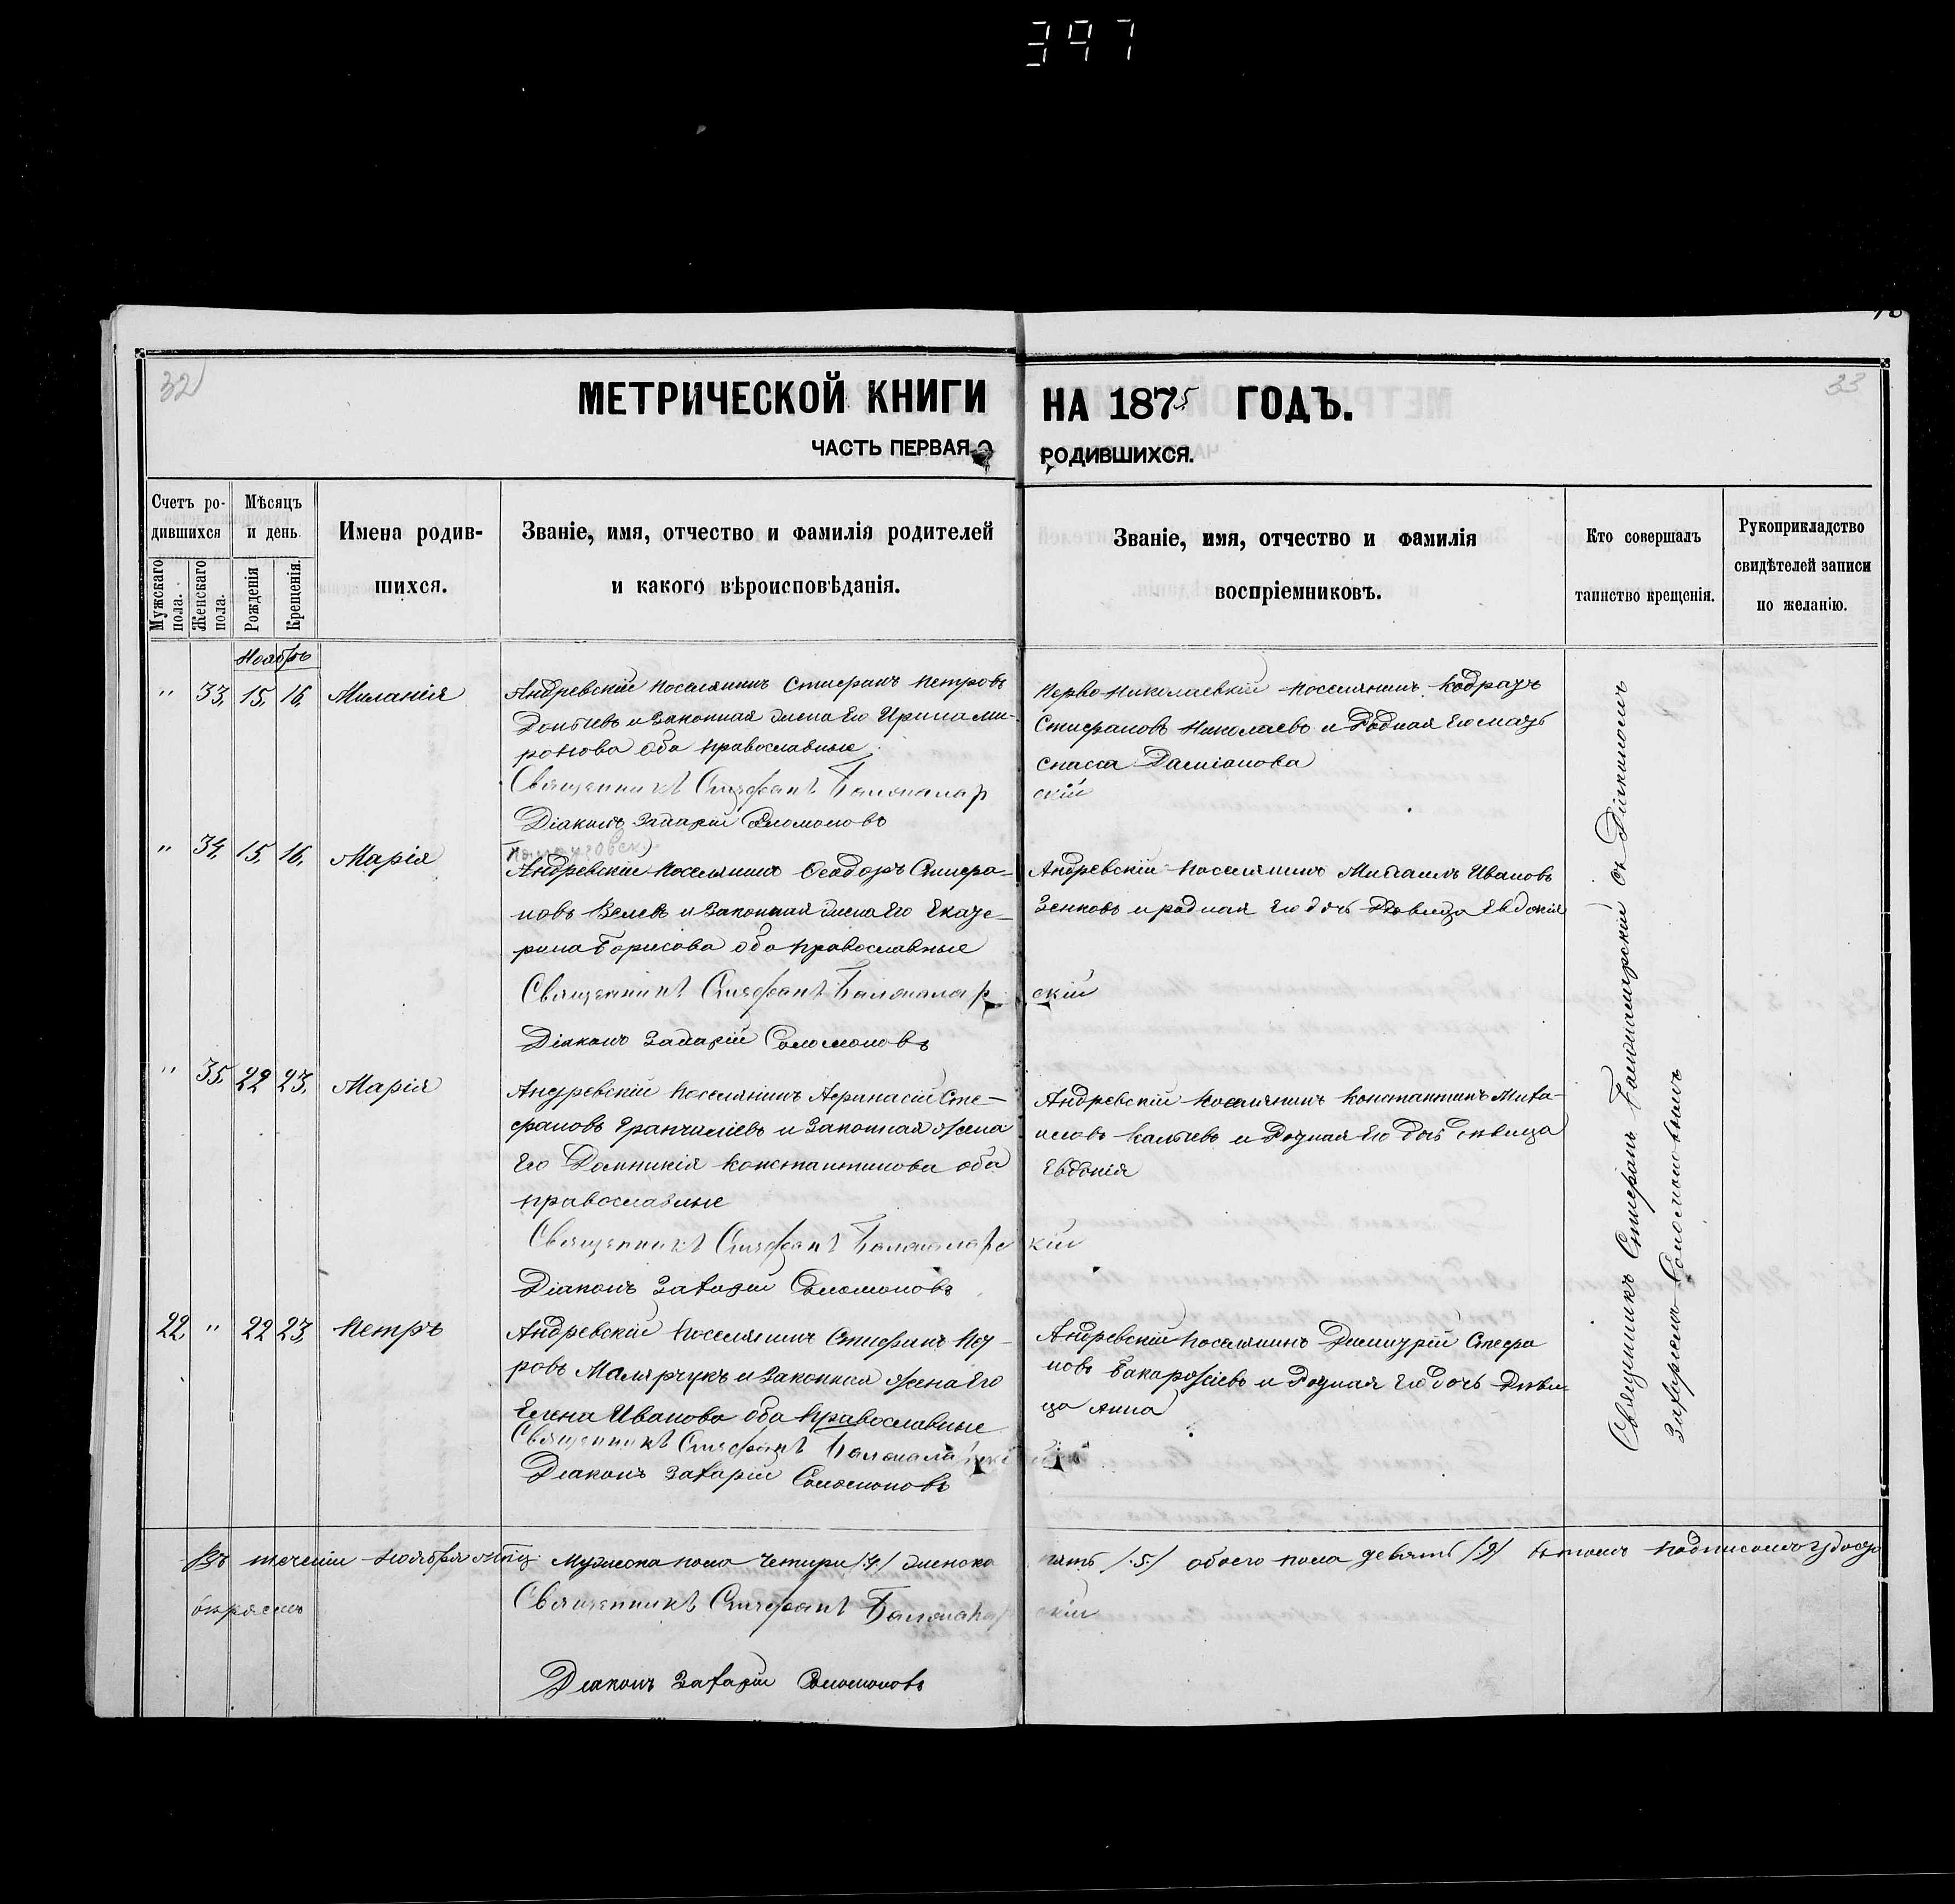 397
32
33
МЕТРИЧЕСКОЙ КНИГИ НА 1875 ГОДЪ.
ЧАСТЬ ПЕРВАЯ РОДИВШИХСЯ.
Счетъ ро-
дившихся
Мужскаго пола.
Женскаго пола.
Мѣсяцъ
и день.
Рожденія
Крещенія.
Имена родив-
шихся.
Званіе, имя, отчество и фамилія родителей
и какого вѣроисповѣданія.
Званіе, имя, отчество и фамилія
воспріемниковъ.
Кто совершалъ
таинство крещенія.
Рукоприкладство
свидѣтелей записи
по желанію.
Ноябрь
" 33. 15. 16. Миланія
Андревскій поселянинъ Стефанъ Петровъ
и законная жена его Ирина Ми-
ронова оба православные
Священникъ Стефанъ
Діаконъ Захарій Соломоновъ
Перво Николаевкій поселянинъ Кодратъ
Стефановъ Николаевъ и Родная его мать
Спасса Даміанова
скій
" 34. 15. 16. Марія
Андревскій поселянинъ Ѳеодоръ Стефа-
новъ Велевъ и законная жена его Екате-
рина Борисова оба православные
Священникъ Стефанъ
Діаконъ Захарій Соломоновъ
Андревскій поселянинъ Михаилъ Ивановъ
Зенковъ и родная его дочь Дѣвица Евдокія
скій
" 35. 22 23. Марія
Андревскій поселянинъ Афанасій Сте-
фановъ и законная жена
его Домникія Константинова оба
православные
Священникъ Стефанъ
Діаконъ Захарій Соломоновъ
Андревскій поселянинъ Константинъ Миха-
иловъ Калчевъ и Родная его дочь Дѣвица
Евдокія
кій
22 " 22 23. Петръ
Андревскій поселянинъ Стефанъ Пет-
ровъ Малярчукъ и законная жена его
Елена Иванова оба православные
Священникъ Стефанъ
Діаконъ Захарій Соломоновъ
Андревскій поселянинъ Димитрій Стефа
новъ и Родная его дочь Дѣви-
ца Анна
Священникъ Стефанъ съ Діакономъ
Захаріемъ Соломоновымъ
Въ теченіи Ноября мца Мужеска пола четыри /4/ женска пять /5/ обоего пола девять /9/ въ томъ подписомъ удосто
вѣряемъ
Священникъ Стефанъ скій
Діаконъ Захарій Соломоновъ